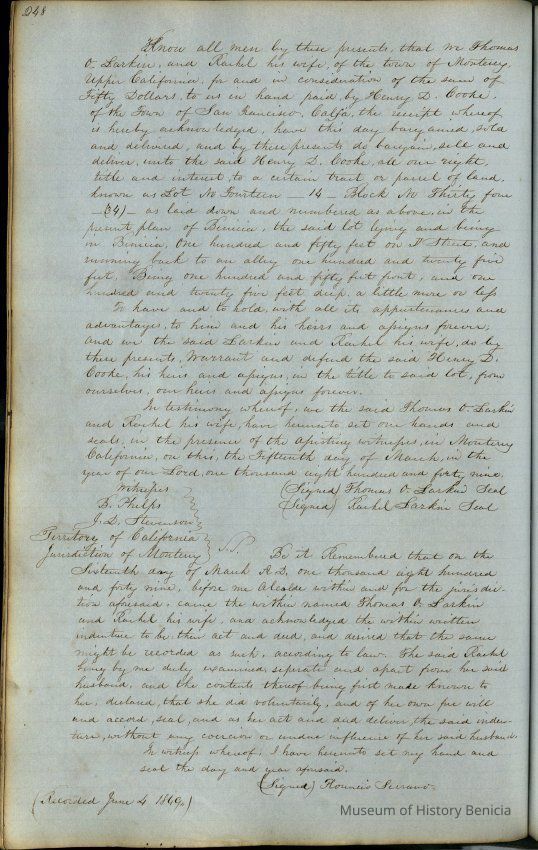 248
Know all men by these presents, that we Thomas
O. Larkin, and Rachel his wife, of the town of Monterey,
Upper California, for and in consideration of the sum of
Fifty Dollars, to us in hand paid, by Henry D. Cooke,
of the Town of San Francisco, Calfa, the receipt whereof
is hereby acknowledged, have this day bargained, sold
and delivered, and by these presents do bargain, sell and
deliver, unto the said Henry D. Cooke, all our right,
title and interest, to a certain tract or parcel of land,
known as Lot No Fourteen — 14 — Block No Thirty four
—(34)— as laid down and numbered as above, in the
present plan of Benicia, the said lot lying and being
in Benicia, One hundred and fifty feet on D Street, and
running back to an alley one hundred and twenty five
feet, Being one hundred and fifty feet front, and one
hundred and twenty five feet deep, a little more or less
To have and to hold, with all its appurtenances and
advantages, to him and his heirs and assigns forever,
and we the said Larkin and Rachel his wife, do by
these presents, Warrant and defend the said Henry D.
Cooke, his heirs and assigns, in the title to said lot, from
ourselves, our heirs and assigns forever.
In testimony whereof, we the said Thomas O. Larkin
and Rachel his wife, have hereunto set our hands and
seals, in the presence of the witnesses, in Monterey
California, on this, the Fifteenth day of March, in the
year of our Lord, one thousand eight hundred and forty nine.
Witnesses (Signed) Thomas O. Larkin Seal
B. Phelps (Signed) Rachel Larkin Seal
J. D. Stevenson
Territory of California
Jurisdiction of Monterey } S.S. Be it Remembered that on the
Sixteenth day of March A.D. one thousand eight hundred
and forty nine, before me Alcalde within and for the jurisdic-
tion aforesaid, came the within named Thomas O. Larkin
and Rachel his wife, and acknowledged the within written
indenture to be their act and deed, and desired that the same
might be recorded as such, according to law. The said Rachel
being by me duly examined, seperate and apart from her said
husband, and the contents thereof being first made known to
her, declared, that she did voluntarily, and of her own free will
and accord, seal, and as her act and deed deliver, the said inden-
ture, without any coercion or undue influence of her said husband.
In witness whereof, I have hereunto set my hand and
seal the day and year aforesaid.
(Signed) Florencio Serrano
(Recorded June 4 1849.)
Museum of History Benicia